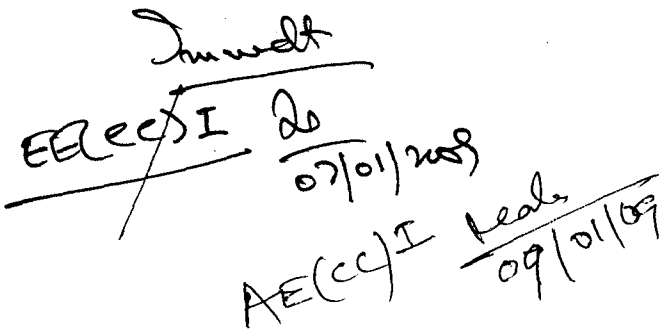 Immedt
EE(CC) I
07/01/2009
AE(CC) I
09/01/09